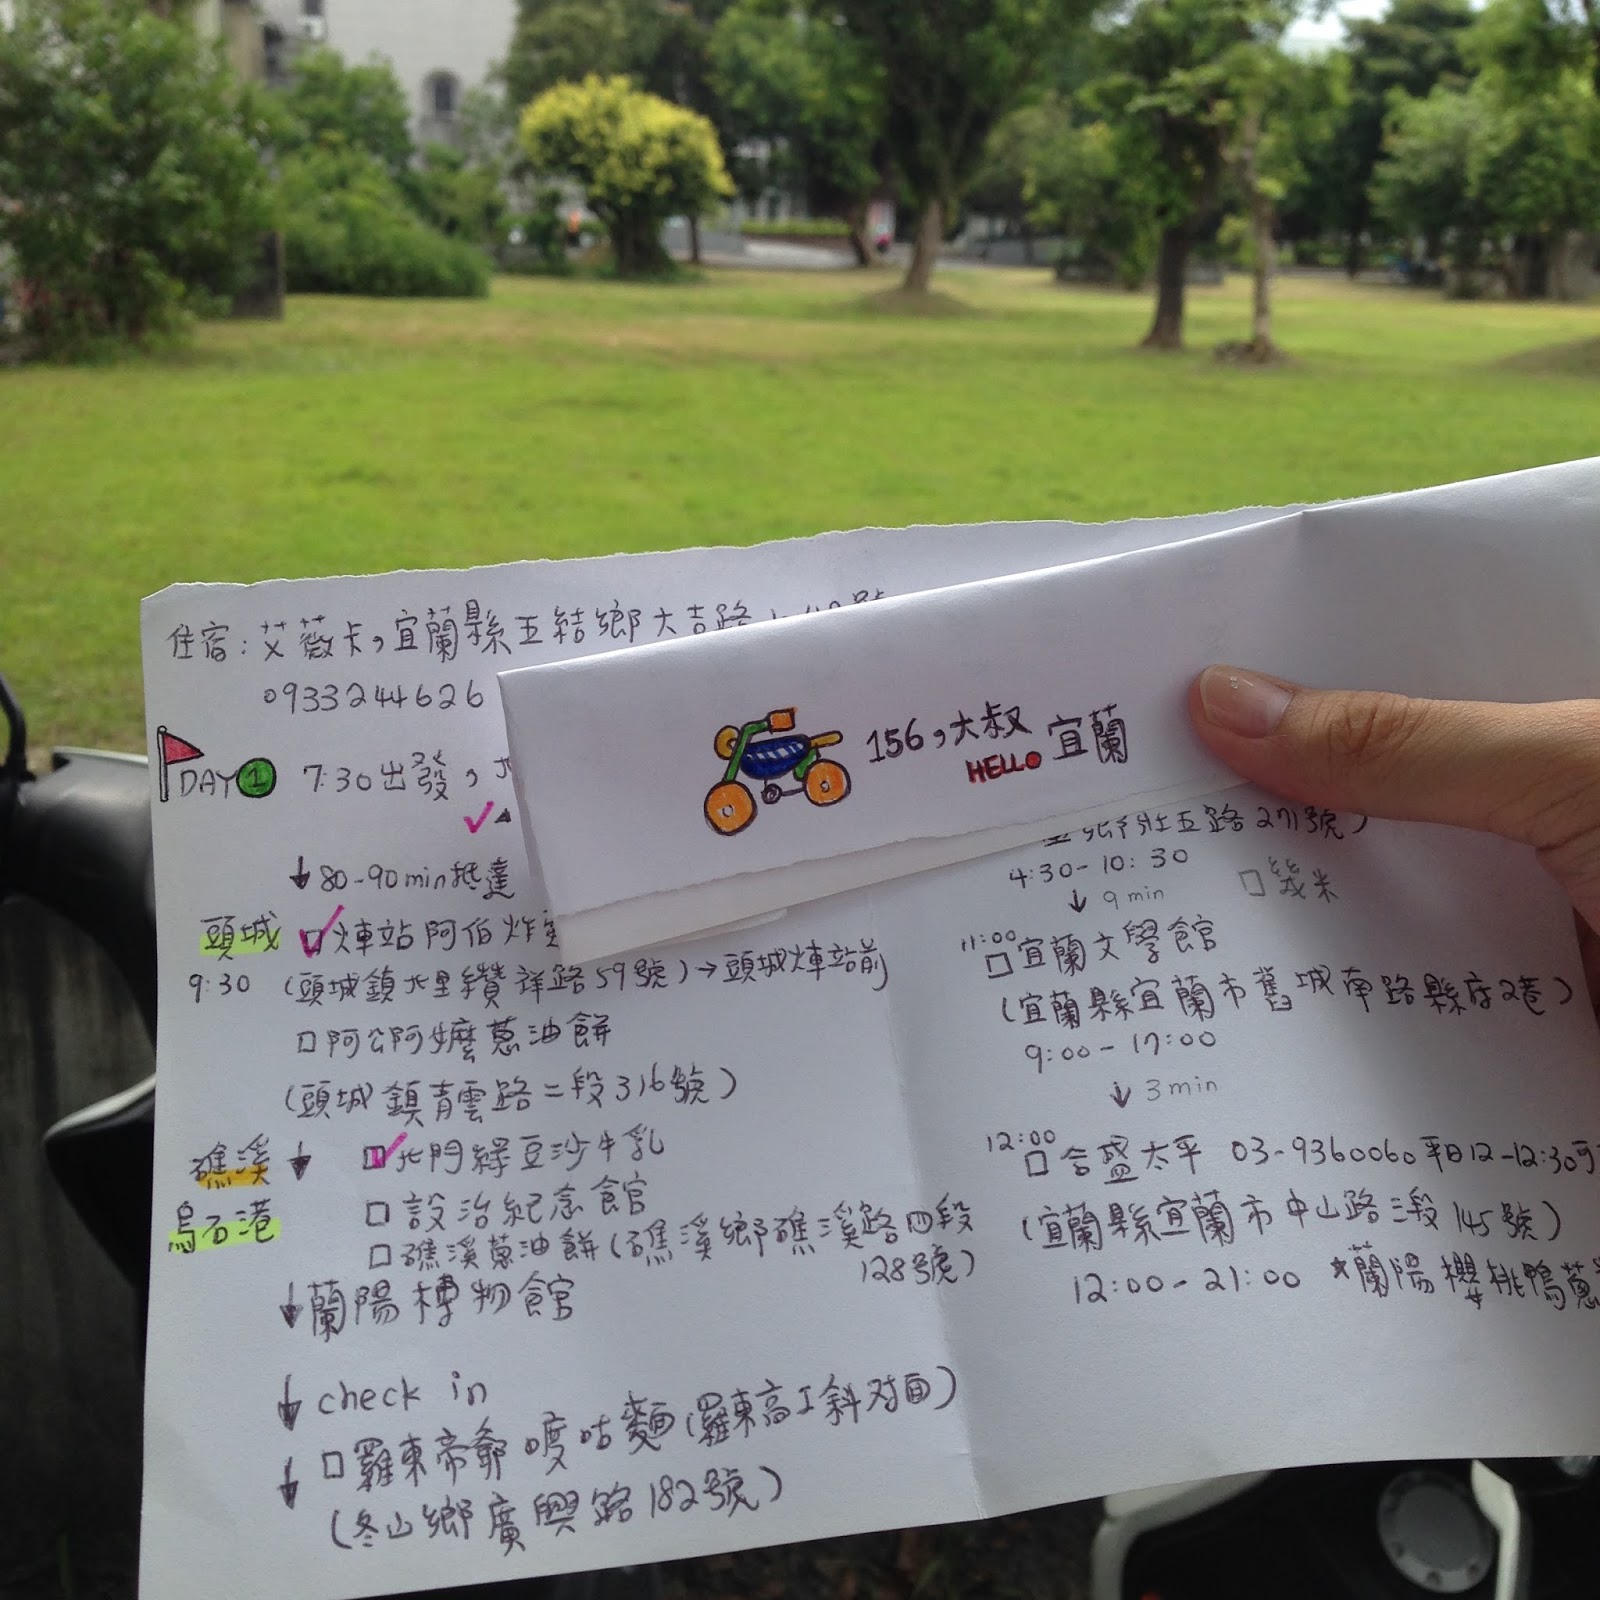 住宿：艾薇卡，宜蘭縣五結鄉大吉路
0933244626
DAY 1 7:30出發，
80-90min抵達
頭城 車站阿伯炸
9:30 (頭城鎮北里纘祥路59號)→頭城車站前
阿公阿嬤蔥油餅
(頭城鎮青雲路二段316號)
礁溪 北門綠豆沙牛乳
烏石港 設治紀念館
礁溪蔥油餅(礁溪鄉礁溪路四段
128號)
蘭陽博物館
check in
羅東帝爺嚘咕麵(羅東高工斜对面)
(冬山鄉廣興路182號)
156，大叔
HELLO 宜蘭
五路271號)
4:30-10:30
9 min 幾米
11:00 宜蘭文學館
(宜蘭縣宜蘭市舊城南路縣府2巷)
9:00-17:00
3 min
12:00 合盛太平 03-9360060 平日12-12:30可
(宜蘭縣宜蘭市中山路三段145號)
12:00-21:00 *蘭陽櫻桃鴨蔥